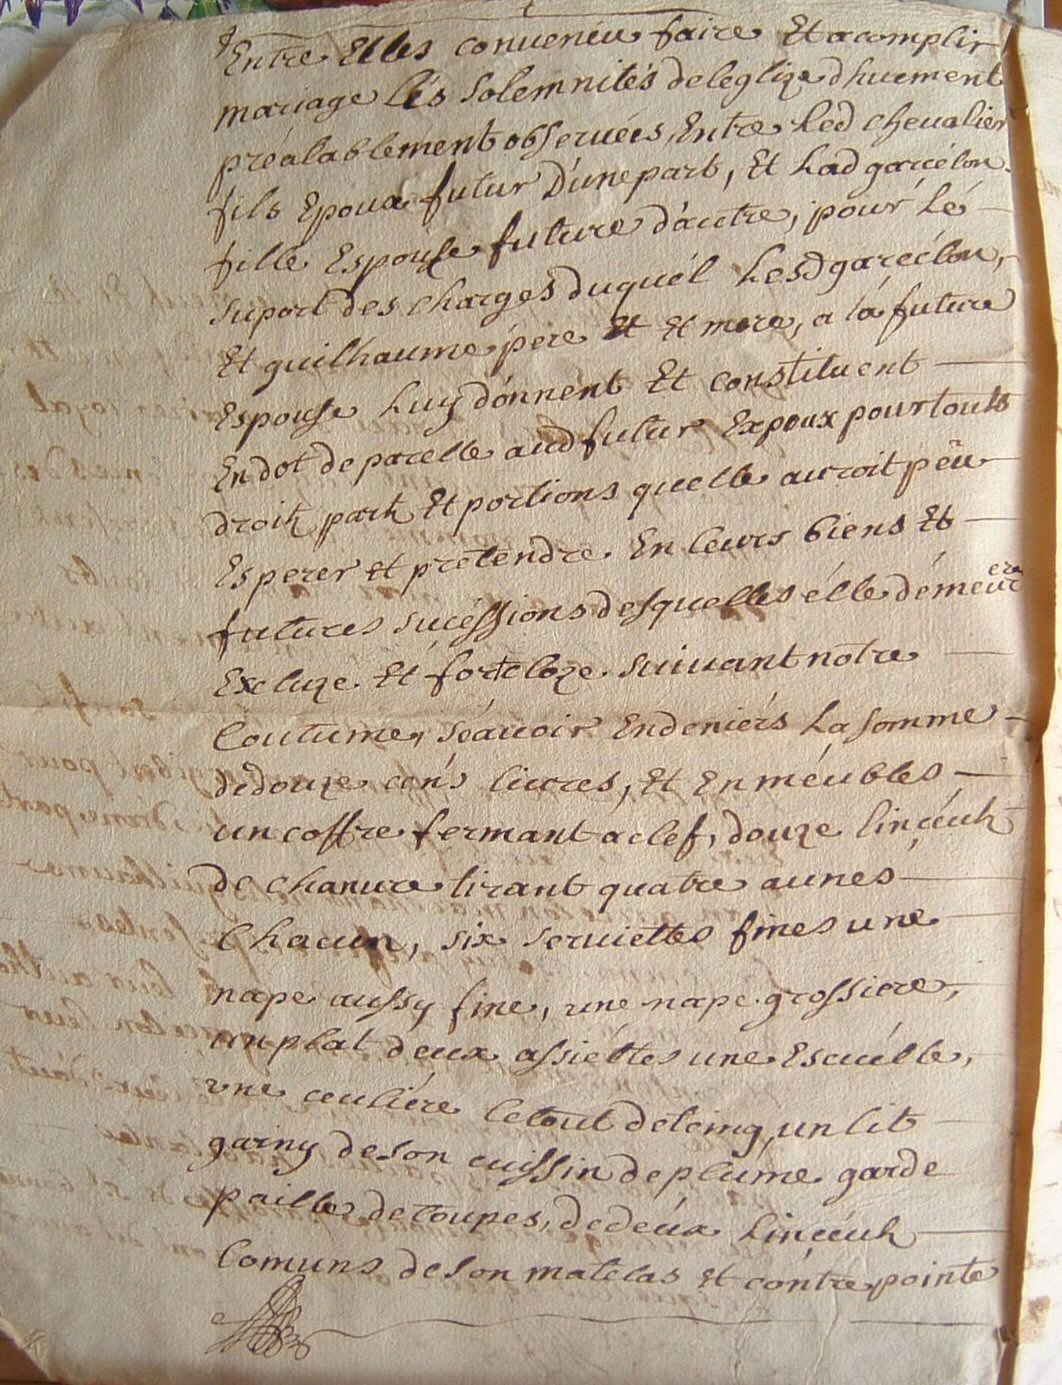 Entre Elles convenëu faire Et acomplir
mariage les solemnités deleglize dhuement
préalablement observées, Entre Led chevalier
fils Epoux futur D'une part, Et Lad garcélon
fille Espouse future d'autre, pour Lé
suport des charges duquél Lesd garcélon,
Et guilhaume pére Et Et mere, a la future
Espouse Luy donnent Et constituent
En dot de parelle aud futur Expoux pour touts
droitz partz Et portions quelle auroit pëu
Esperer et pretendre En leurs biens Et
futures sucéssions desquelles élle démeurera
Excluze Et forcloze suivant notre
Coutume, scavoir En deniérs La somme
de douze cens livres, Et En méubles
un coffre fermant a clef, douze linceulz
de chanvre tirant quatre aunes
Chacun, six serviettes fines une
nape aussy fine, une nape grossiere,
un plat deux assiéttes une Escuélle,
une ceuliére le tout deteing, un lit
garny de son cuissin de plume garde
paille detoupes, de déux Linceulz
Comuns de son matelas Et contre pointe